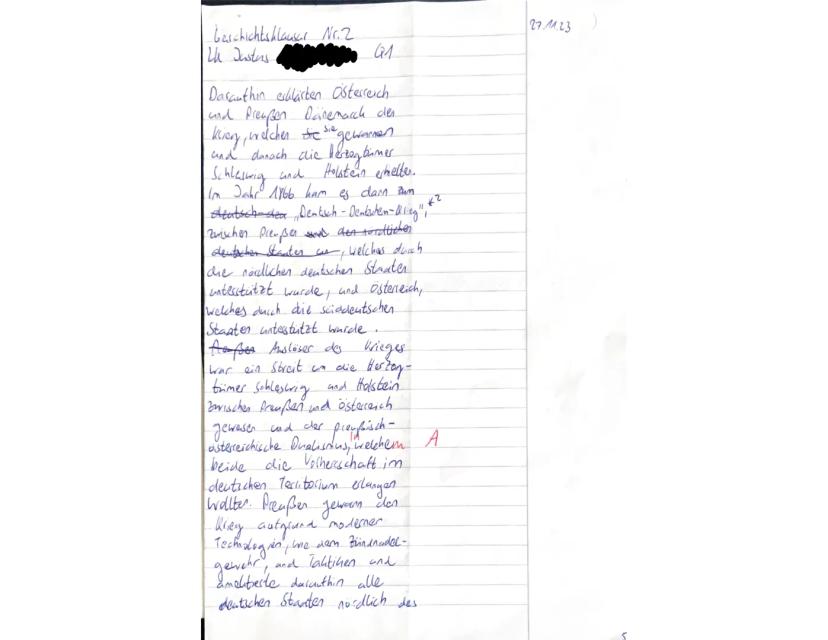 Geschichtsklausur Nr. 2
27.11.23
LK Justus Q1
Daraufhin erklärten Österreich
und Preußen Dänemarck den
Krieg, welchen sie gewannen
und danach die Herzogtümer
Schleswig und Holstein erhielten.
Im Jahr 1866 kam es dann zum
"Deutsch-Deutschen-Krieg", *2
zwischen Preußen, welches durch
die nördlichen deutschen Staaten
unterstützt wurde, und Österreich,
welches durch die süddeutschen
Staaten unterstützt wurde.
Auslöser des Krieges
war ein Streit um die Herzog-
tümer Schleswig und Holstein
zwischen Preußen und Österreich
gewesen und der preußisch-
österreichische Dualismus, in welchem A
beide die Vorherrschaft im
deutschen Territorium erlangen
wollten. Preußen gewann den
Krieg aufgrund moderner
Technologien, wie dem Zündnadel-
gewehr, und Taktiken und
annektierte daraufhin alle
deutschen Staaten nördlich des